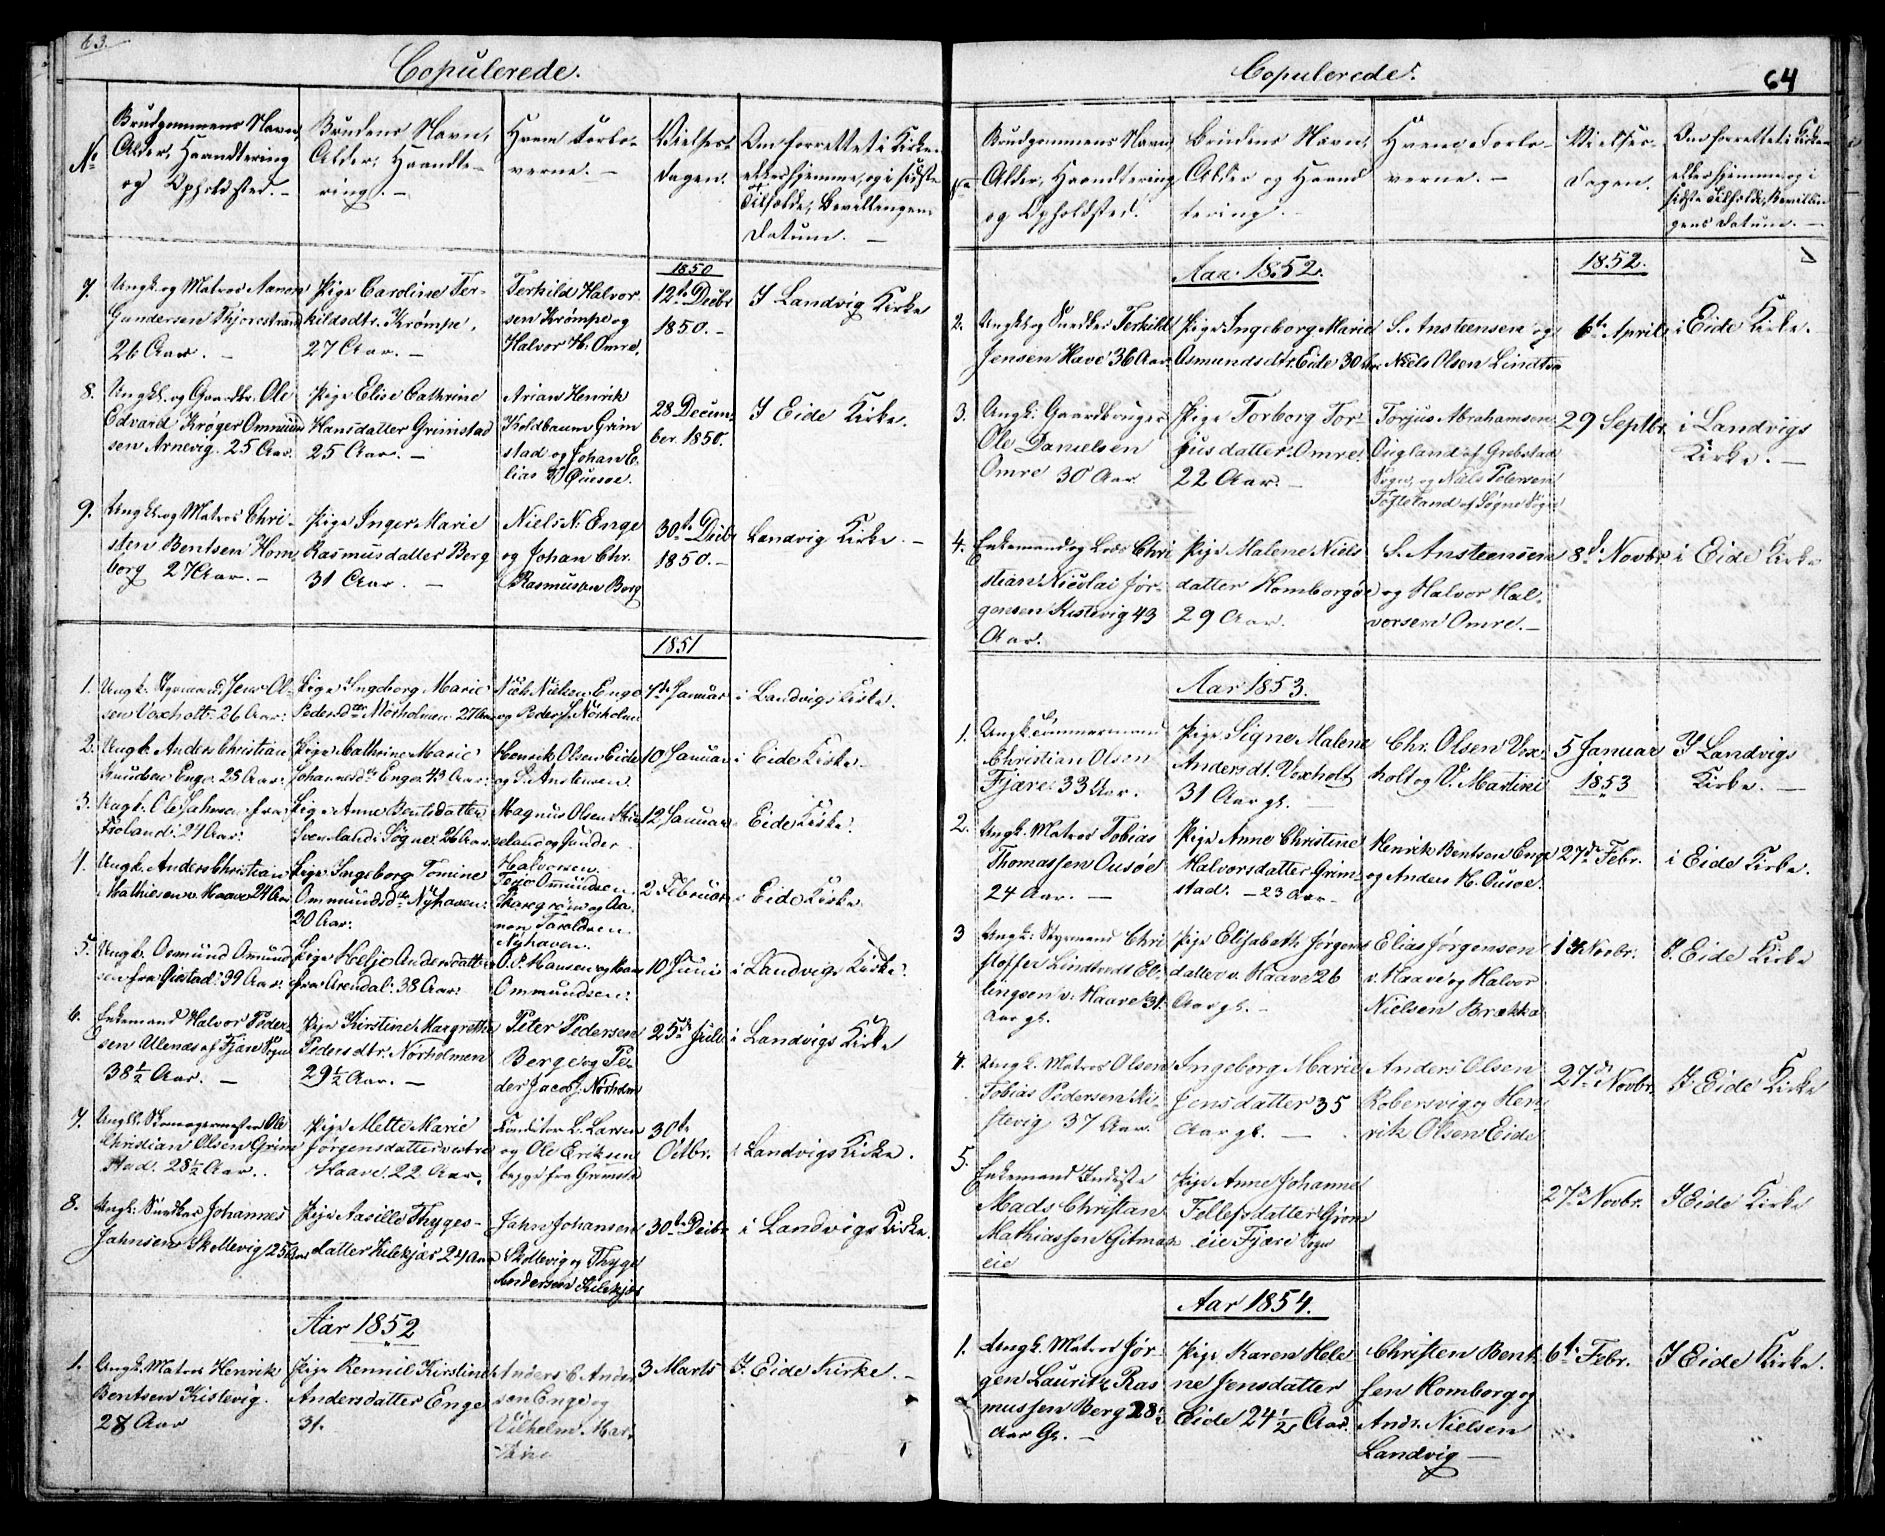 63.
Copulerede.
No
Brudgommens Navn,
Alder, Haandtering
og Opholdsted. –
Brudens Navn,
Alder, Haandte-
ring. –
Hvem Forlo-
verne. –
Vielses-
dagen.
Om forrettet i Kirken
eller hjemme, og i sidste
Tilfælde, Bevillingens
Datum. –
1850
7.
Ungk. og Matros Aanen
Gundersen
26 Aar. –
Pige Caroline Ter-
kildsdtr. Krømpe,
27 Aar. –
Terkild Halvor-
sen Krømpe og
Halvor H. Omre.
12te Decbr
1850. –
I Landvig Kirke
8.
Ungk. og Gaardbr. Ole
Edvard Krøger Ommund
sen Arnevig. 25 Aar.
Pige Elise Cathrine
Hansdatter Grimstad
25 Aar. –
Arian Henrik
Holdbaum Grim
stad og Johan E-
lias
28 Decem-
ber 1850.
I Eide Kirke.
9.
Ungk. og Matros Chri-
sten Bentsen Hom
borg 27 Aar. –
Pige Inger Marie
Rasmusdatter Berg
31 Aar. –
Niels N. Enge
og Johan Chr.
Rasmussen Berg
30te Decbr
1850. –
Landvig Kirke. –
1851
1.
Ungk. Styrmand Jens Ol-
sen Voxholt. 26 Aar:
Pige Ingeborg Marie
Pedersdtr Nørholmen 27 Aar
Niels Nielsen Enge
og Peder J. Nørholm
7de Januar
i Landvigs Kirke.
2.
Ungk. Anders Christian
Knudsen Enge. 25 Aar:
Pige Cathrine Marie
Johannesdtr Enge. 43 Aar:
Henrik Olsen Eide
og S. Ansteensen.
10 Januar
i Eide Kirke.
3.
Ungk. Ole Jahnsen fra
Froland: 27 Aar:
Pige Anne Bentsdatter
Sveenland: Søgne. 26 Aar.
Magnus Olsen
og Gunder
Halvorsen.
12 Januar
Eide Kirke.
4.
Ungk. Anders Christian
Mathisen v. Haave 24 Aar
Pige Ingeborg Tomine
Ommundsdtr Nyhaven:
20 Aar:
Terjo Omundsen
Skaregrøm og Aa-
non Taraldsen
Nyhaven.
2 Februar
Eide Kirke
5.
Ungk. Osmund Omund
sen fra Gjestad: 39 Aar:
Pige Helje Andersdatter
fra Arendal: 38 Aar:
O. P. Hansen og
Ommundsen:
10 Juni
i Landvigs Kirke.
6.
Enkemand Halvor Peder-
sen Allenæs af Fjære Sogn
38½ Aar. –
Pige Kirstine Margrethe
Pedersdtr. Nørholmen
29½ Aar. –
Peter Pedersen
Berge og Pe-
der Jacobs. Nørholm
25de Juli
i Landvigs Kirke
7.
Ungk. Skomagermester Ole
Christian Olsen Grim
stad. 28½ Aar.
Pige Mette Marie
Jørgensdatter vestre
Haave. 22 Aar.
Conditor L. Larsen
og Ole Eriksen
begge fra Grimsta
30te
Octbr.
i Landvigs Kirke.
8.
Ungk. Snedker Johannes
Jahnsen Skollevig 25 Aar
Pige Aasille Thyges-
datter Kilekjær 24 Aar
Jahn Johansen
Skollevig og Thyge
Andersen Kilekjær
30te Decbr
i Landvigs Kirke.
Aar 1852
1.
Ungk. Matros Henrik
Bentsen Kistevig.
28 Aar
Pige Rennil Kirstine
Andersdatter Enge
31.
Anders C. Ander
sen Enge og
Vilhelm Mar-
tini
3 Marts
I Eide Kirke. –
Copulerede.
64
No
Brudgommens Navn,
Alder, Haandtering
og Opholdsted.
Brudens Navn,
Alder og Haand
tering. –
Hvem Forlo-
verne. –
Vielses-
dagen.
Om forrettet i Kirken
eller hjemme, og i
sidste Tilfælde, Bevillin
gens Datum. –
Aar 1852.
1852.
2.
Ungk. og Snedker Terkild
Jensen Have 36 Aar.
Pige Ingeborg Marie
Osmundsdtr. Eide 30 Aar
S. Ansteensen og
Niels Olsen Lindtve
6te April
i Eide Kirke.
3.
Ungk: Gaardbruger
Ole Danielsen
Omre 30 Aar
Pige Torborg Tor-
jusdatter Omre.
22 Aar. –
Torjus Abrahamsen
Ougland af Grebstad
Sogn, og Niels Petersen
Tofteland af Søgne Sogn
29 Septbr.
i Landvigs
Kirke. –
4.
Enkemand og Lods Chri
stian Nicolai Jør-
gensen Kistevig 43
Aar.
Pige Malene Niels
datter Homborgøe
29 Aar.
S. Ansteensen
og Halvor Hal-
vorsen Omre. –
8de Novbr.
i Eide Kirke
Aar 1853.
1.
Ungk. Tømmermand
Christian Olsen
Fjære. 33 Aar.
Pige Signe Malene
Andersdt. Voxholt
31 Aar gl. –
Chr. Olsen Vox-
holt og V. Martini
5 Januar
1853
I Landvigs
Kirke. –
2.
Ungk. Matros Tobias
Thomassen Ousøe
24 Aar. –
Pige Anne Christine
Halvorsdatter Grim-
stad. – 23 Aar –
Henrik Bentsen Enge
og Anders H. Ousøe.
27de Febr.
i Eide Kirke.
3
Ungk: Styrmand Chri
stoffer Lindtvedt El-
lingsen v: Haave 31
Aar gl.
Pige Elisabeth Jørgens
datter v. Haave 26
Aar gl. –
Elias Jørgensen
v. Haave og Halvor
Nielsen Brække
Novbr.
I Eide Kirke
4.
Ungk. Matros Olsen
Tobias Pedersen Ki-
stevig 37 Aar.
Ingeborg Marie
Jensdatter 35
Aar gl. –
Anders Olsen
Robersvig og Hen
rik Olsen Eide
27de Novbr.
I Eide Kirke
5.
Enkemand Inderste
Mads Christian
Mathiassen Gitmark
eie
Pige Anne Johanne
Tellefsdatter Grom
eie Fjære Sogn
27de Novbr.
I Eide Kirke
Aar 1854.
1.
Ungk. Matros Jør-
gen Lauritz Ras
mussen Berg 28½
Aar Gl. –
Pige Karen Hele
ne Jensdatter
Eide 24½ Aar.
Christen Bent
sen Homborg og
Andr. Nielsen
Landvig –
6te Febr.
I Eide Kirke.